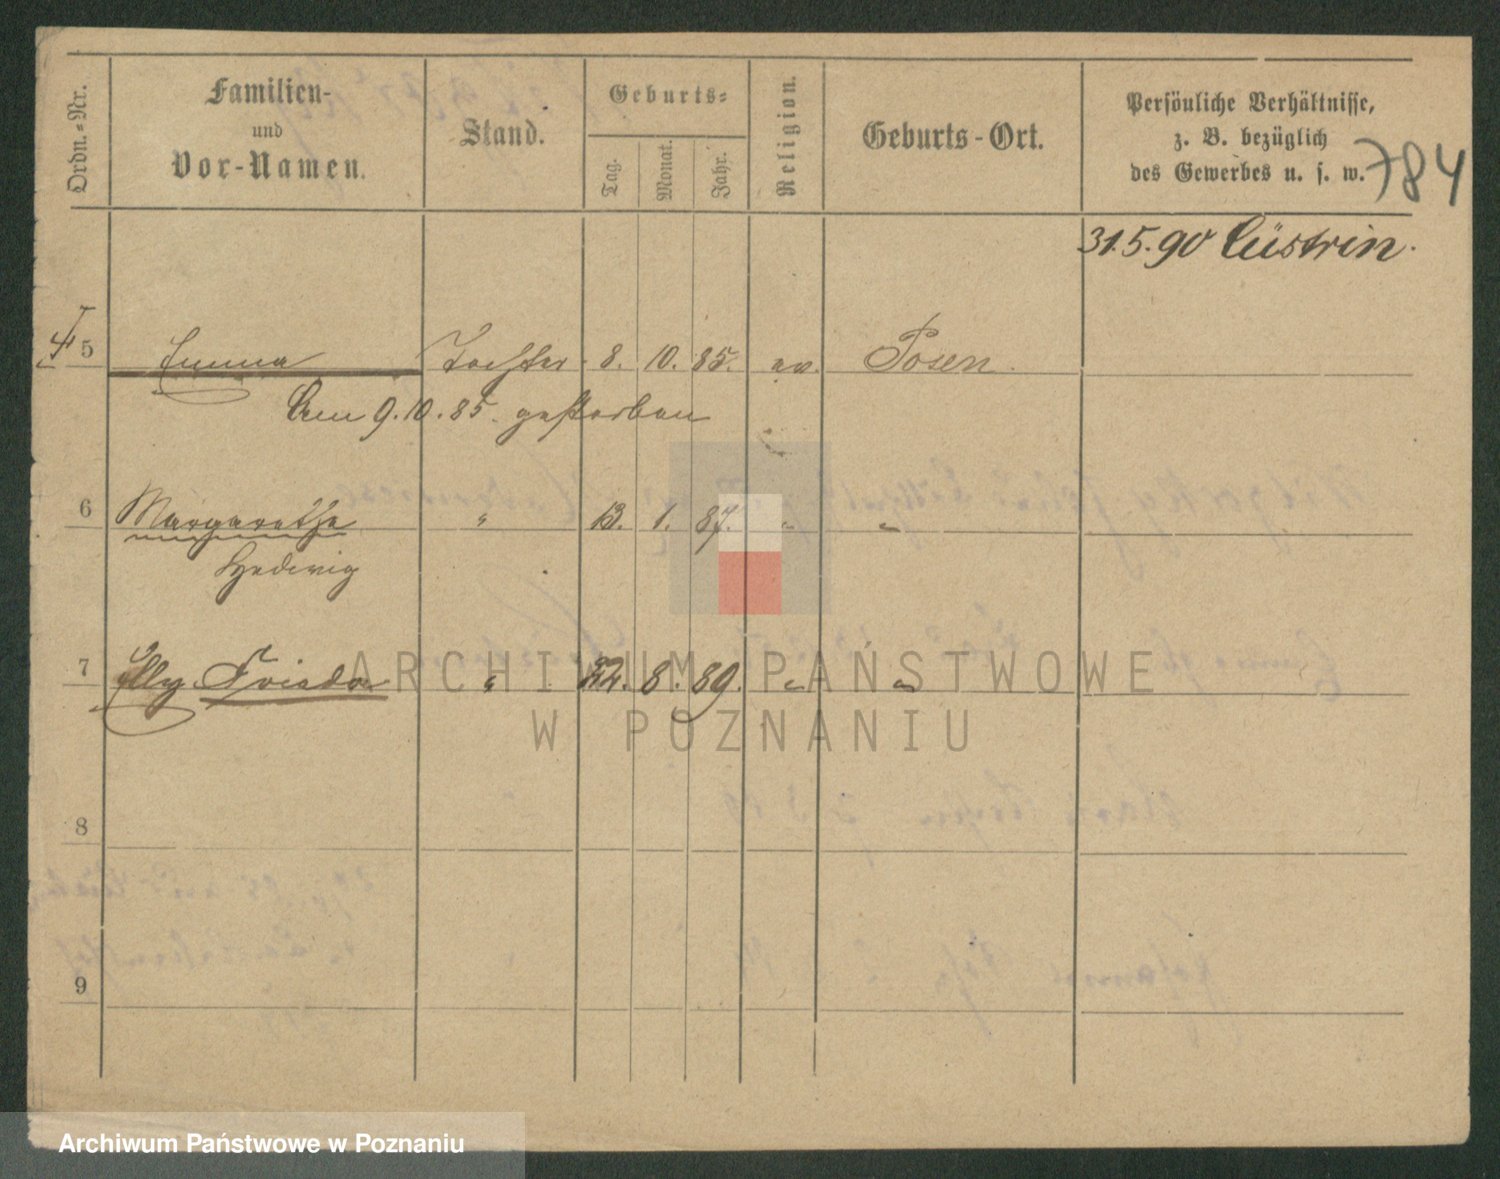 Ordn.=Nr.
Familien-
und
Vor-Namen.
Stand.
Geburts=
Tag.
Monat.
Jahr.
Religion.
Geburts-Ort.
Persönliche Verhältnisse,
z. B. bezüglich
des Gewerbes u. s. w.
784
31.5.90 Cüstrin.
4 5 Emma Tochter 8. 10. 85. ev. Posen.
Am 9.10.85. gestorben
6 Margarethe " 13. 1. 87. " "
Hedwig
7 Elly Frieda " 8. 89. " "
8
9
ARCHIWUM PAŃSTWOWE
W POZNANIU
Archiwum Państwowe w Poznaniu